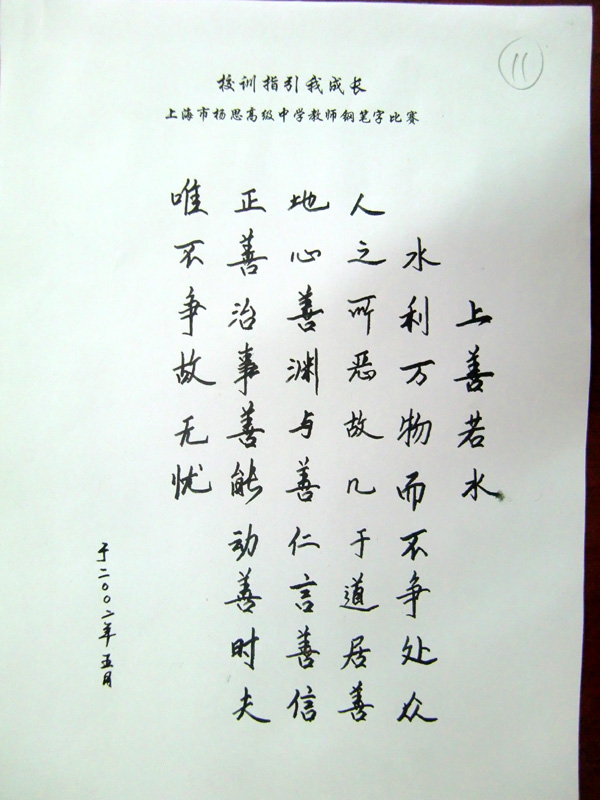 11
校训指引我成长
上海市杨思高级中学教师钢笔字比赛
上善若水
水利万物而不争处众
人之所恶故几于道居善
地心善渊与善仁言善信
正善治事善能动善时夫
唯不争故无忧
于二〇〇二年五月